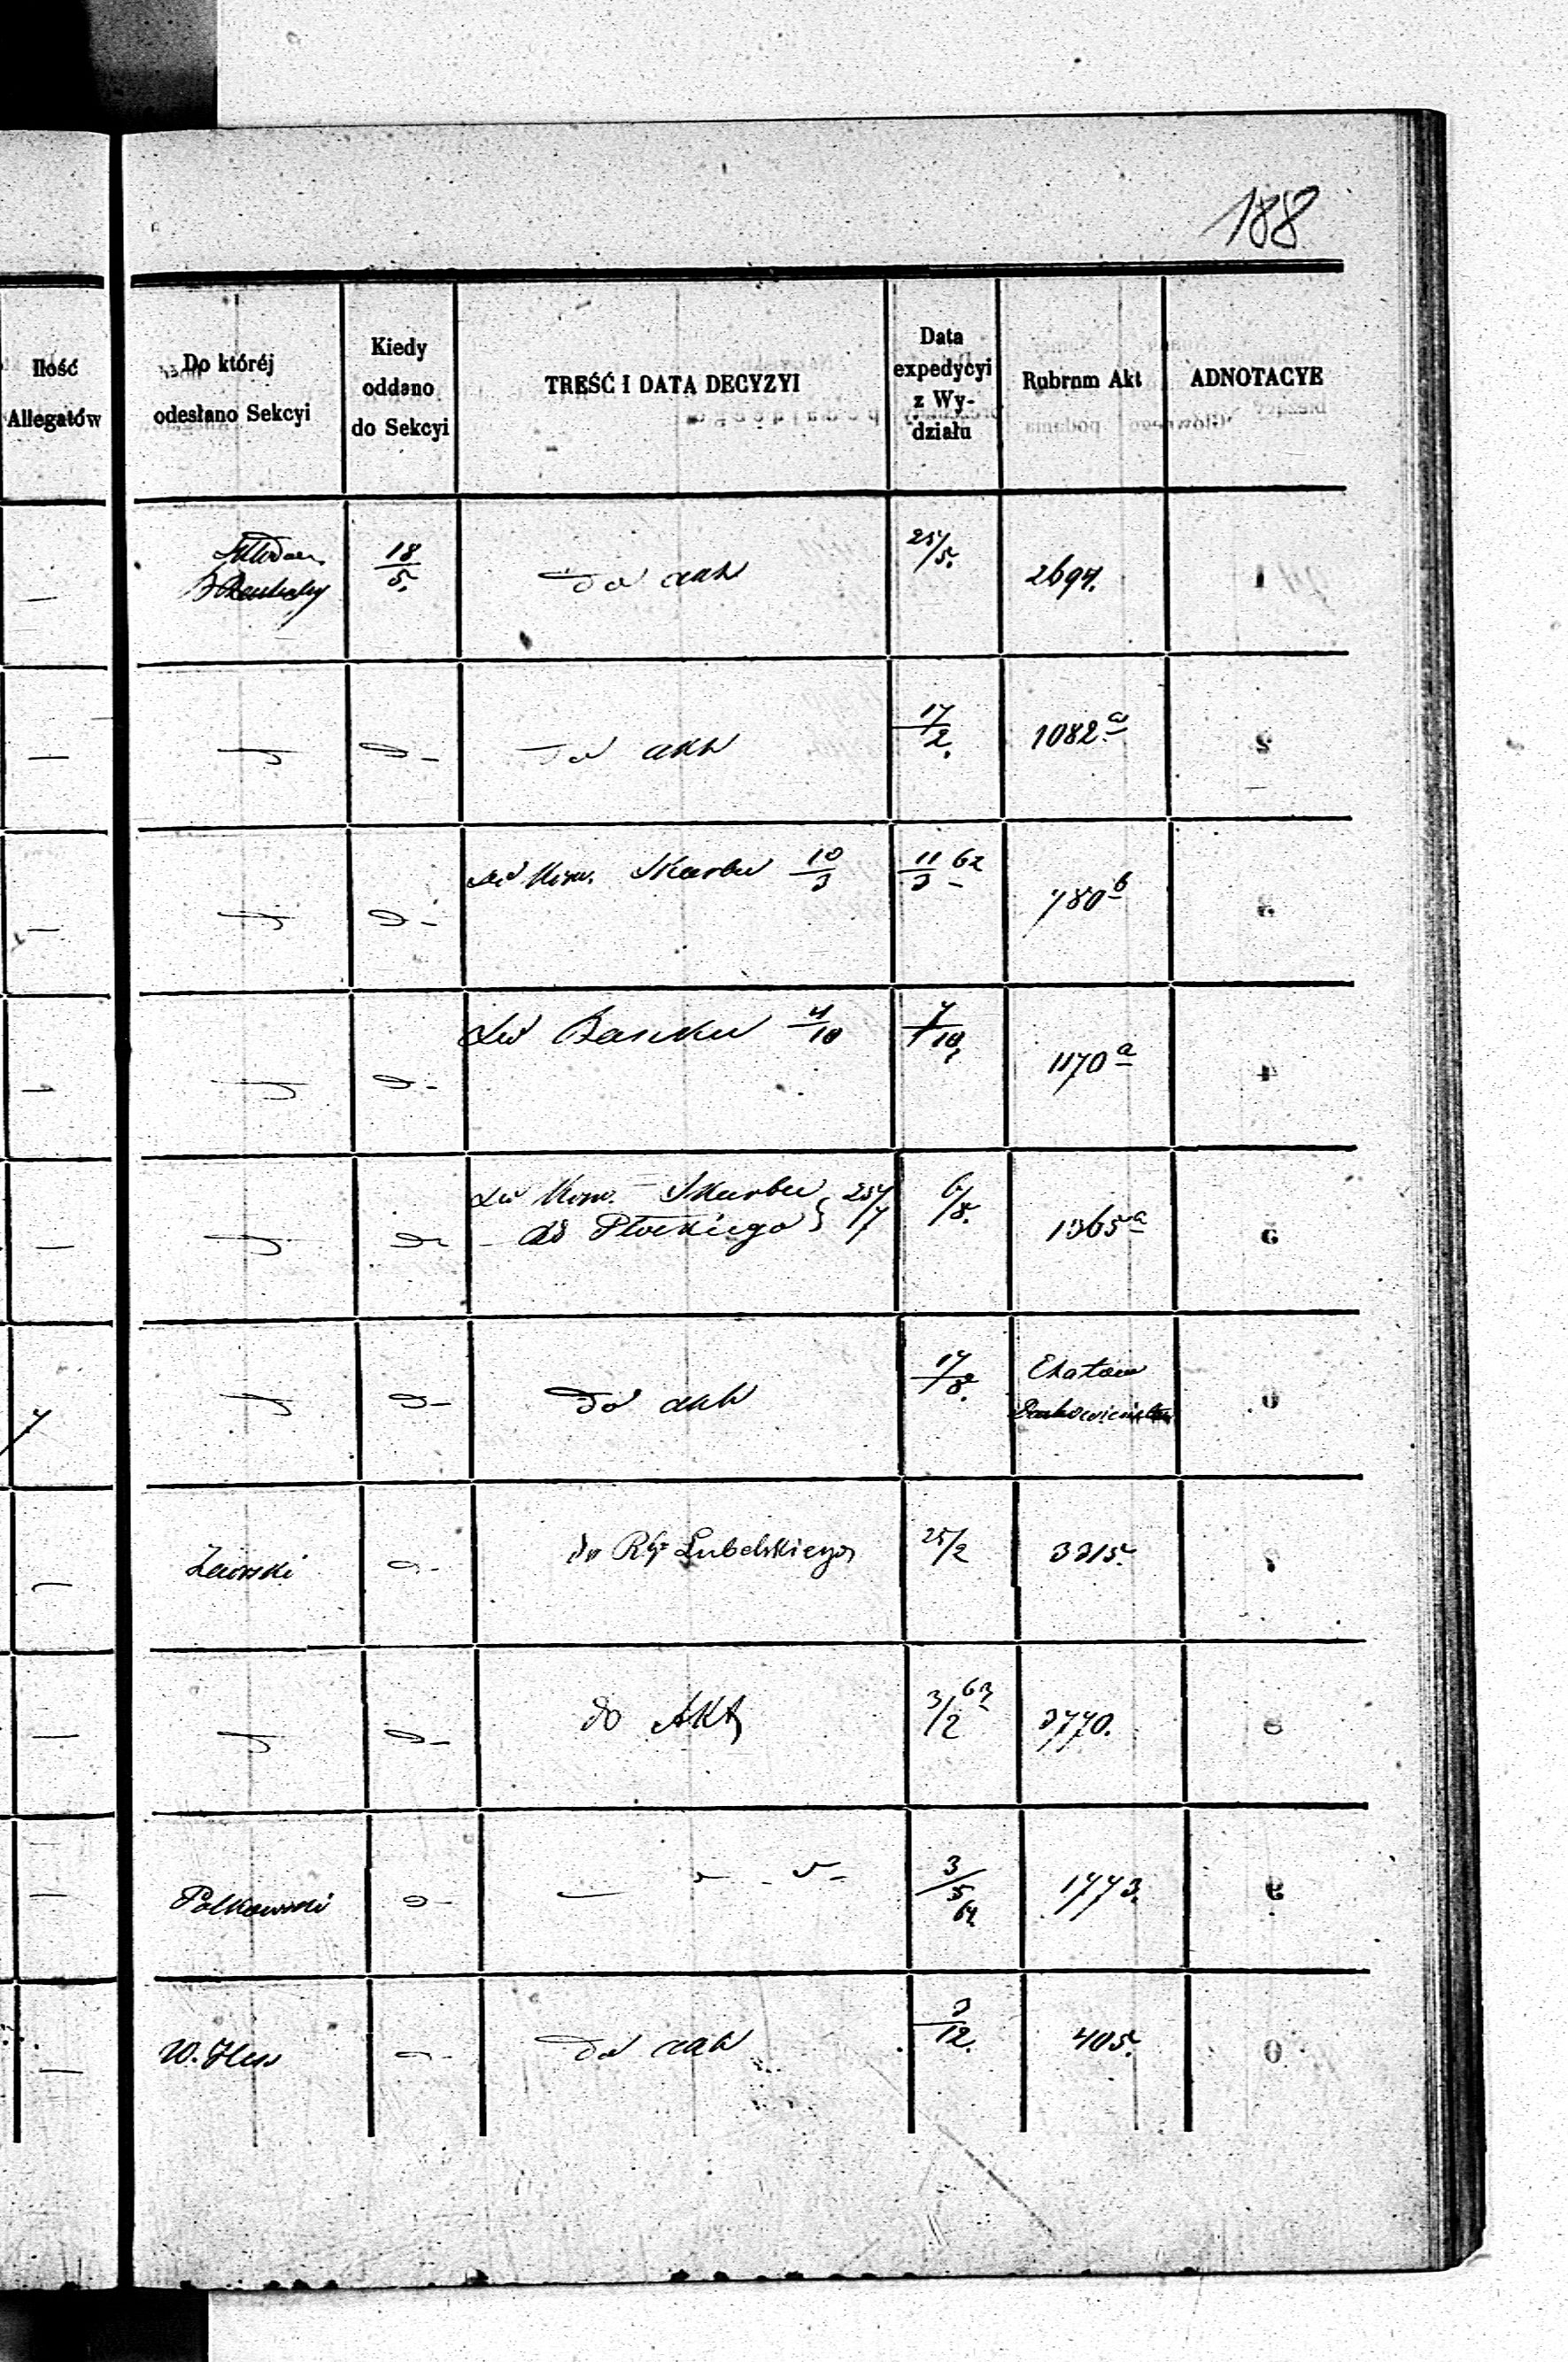 188
Ilość
Allegatów
Do któréj
odesłano Sekcyi
Kiedy
oddano
do Sekcyi
TREŚĆ I DATA DECYZYI
Data
expedycyi
z Wy-
działu
Rubrum Akt
ADNOTACYE
18/5. do akt 25/5. 2697.
— do akt 17/2. 1082 a
— do Kom. Skarbu 10/3 11/3 62 780 b
— do Banku 4/10 7/10. 1170 a
— do Kom. Skarbu } 25/7 6/8. 1365 a
do Płockiego
7 do akt 17/8. Etatow
— do Rz. Lubelskiego 25/2 3315.
— do Akt 3/2 63 3770.
— Polkowski 3/5 62 1773.
— W. Hess do akt 3/12. 405.